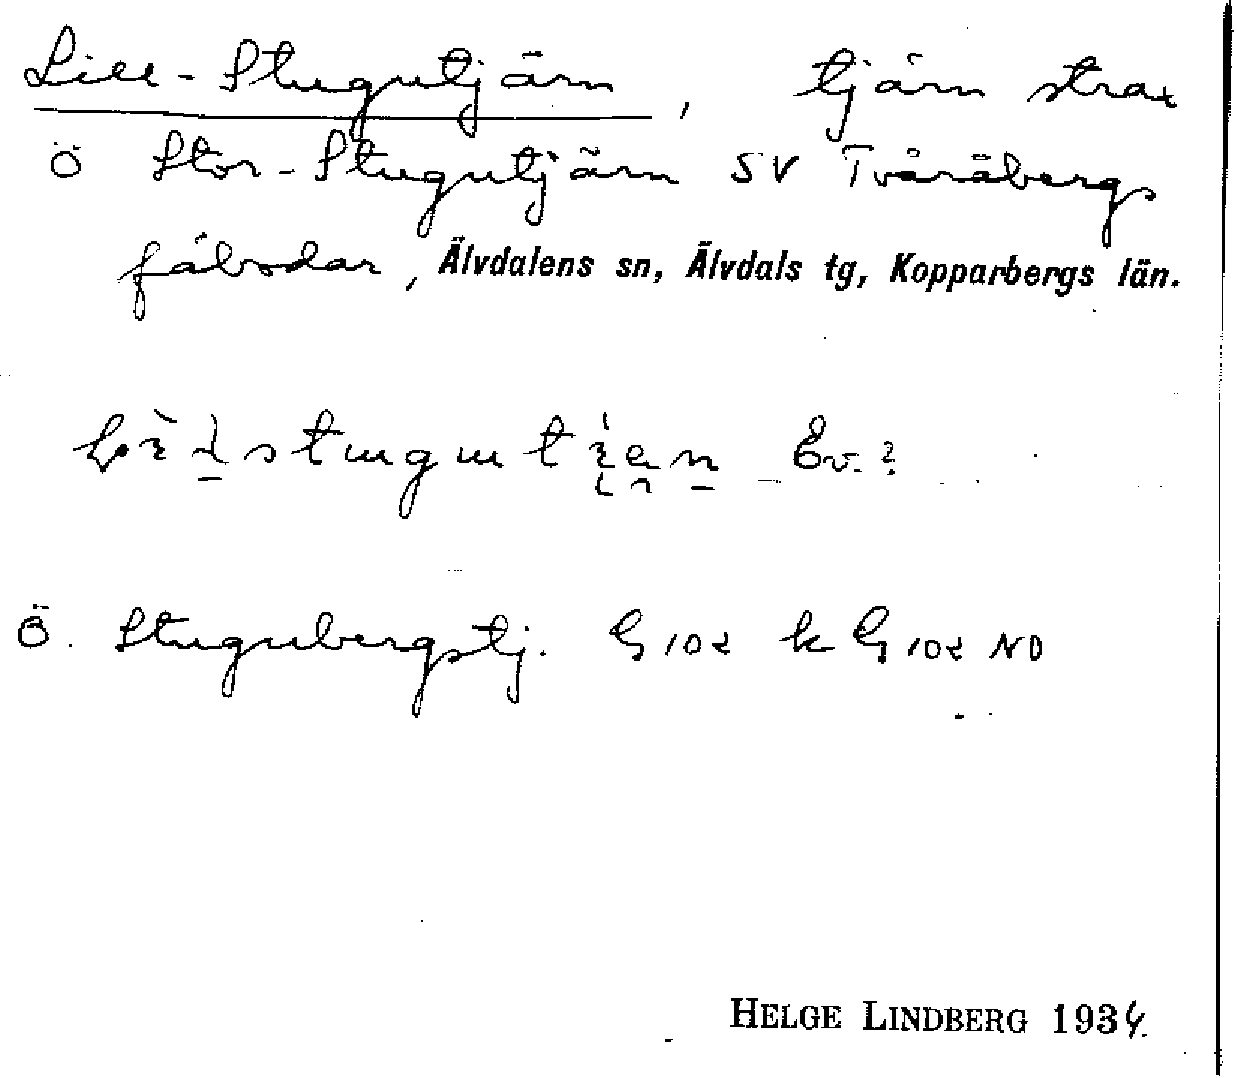 Lill-Stugutjärn, tjärn strax
ö Stor-Stugutjärn SV Tvåräbergs
fäbodar, Älvdalens sn, Älvdals tg, Kopparbergs län.
Ev.?
Ö. Stugubergstj. G 102 k G 102 NO
HELGE LINDBERG 1934